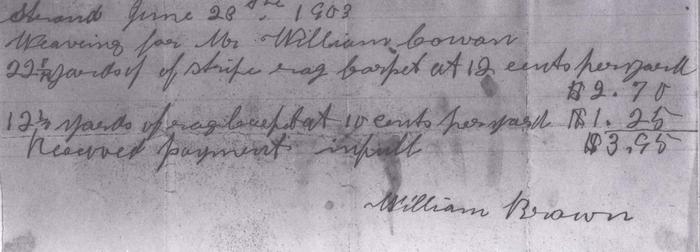 Strand June 28 the, 1903
Weaving for Mr William Cowan
22 1/2 yards of stripe rag carpet at 12 cents per yard
$2.70
12 1/2 yards of rag carpet at 10 cents per yard $1.25
Received payment in full $3.95
William Brown